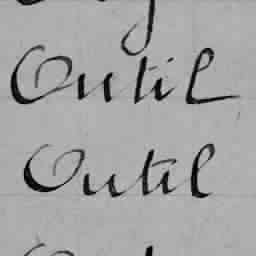 Outil
Outil